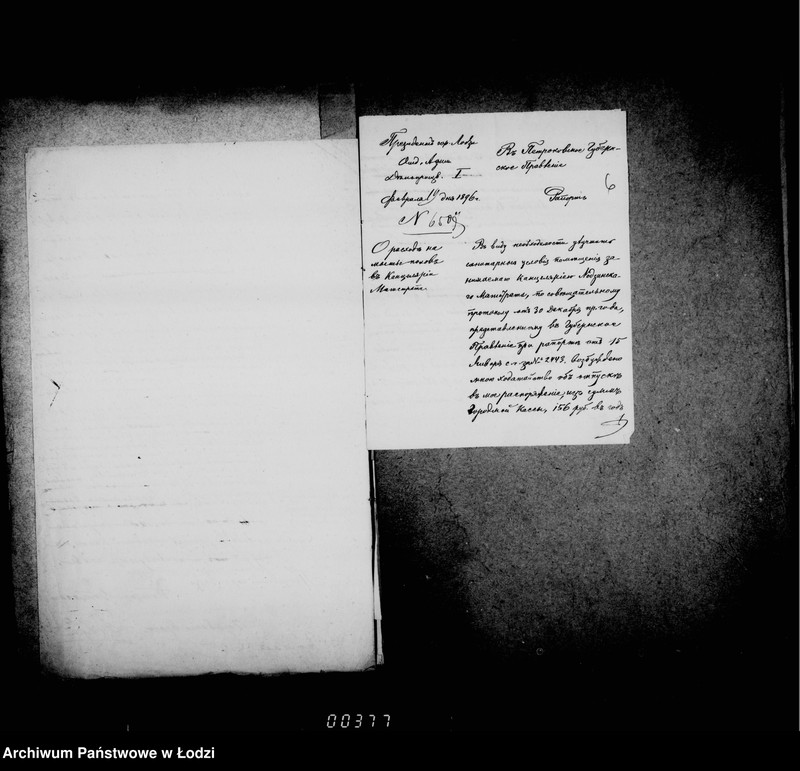 Президентъ гор. Лодзи
Отд. Адми
Дѣлопроизв. I
Февраля 19 дня 1896 г.
N 6509
О расходѣ на
мытье половъ
въ Канцеляріи
Магистрата.
Въ Петроковское Губерн-
ское Правленіе
6
Рапортъ
Въ виду необходимости улучшить
санитарныя условія помѣщенія за-
нимаемаго Канцеляріею Лодзинска-
го Магистрата, по совѣщательному
протоколу отъ 30 Декабря пр. года,
представленному въ Губернское
Правленіе при рапортѣ отъ 15
Января с. г. за № 2443. Возбуждено
мною ходатайство объ отпускѣ
въ мое распоряженіе, изъ суммъ
Городской Кассы, 156 руб. въ годъ
00377
Archiwum Państwowe w Łodzi